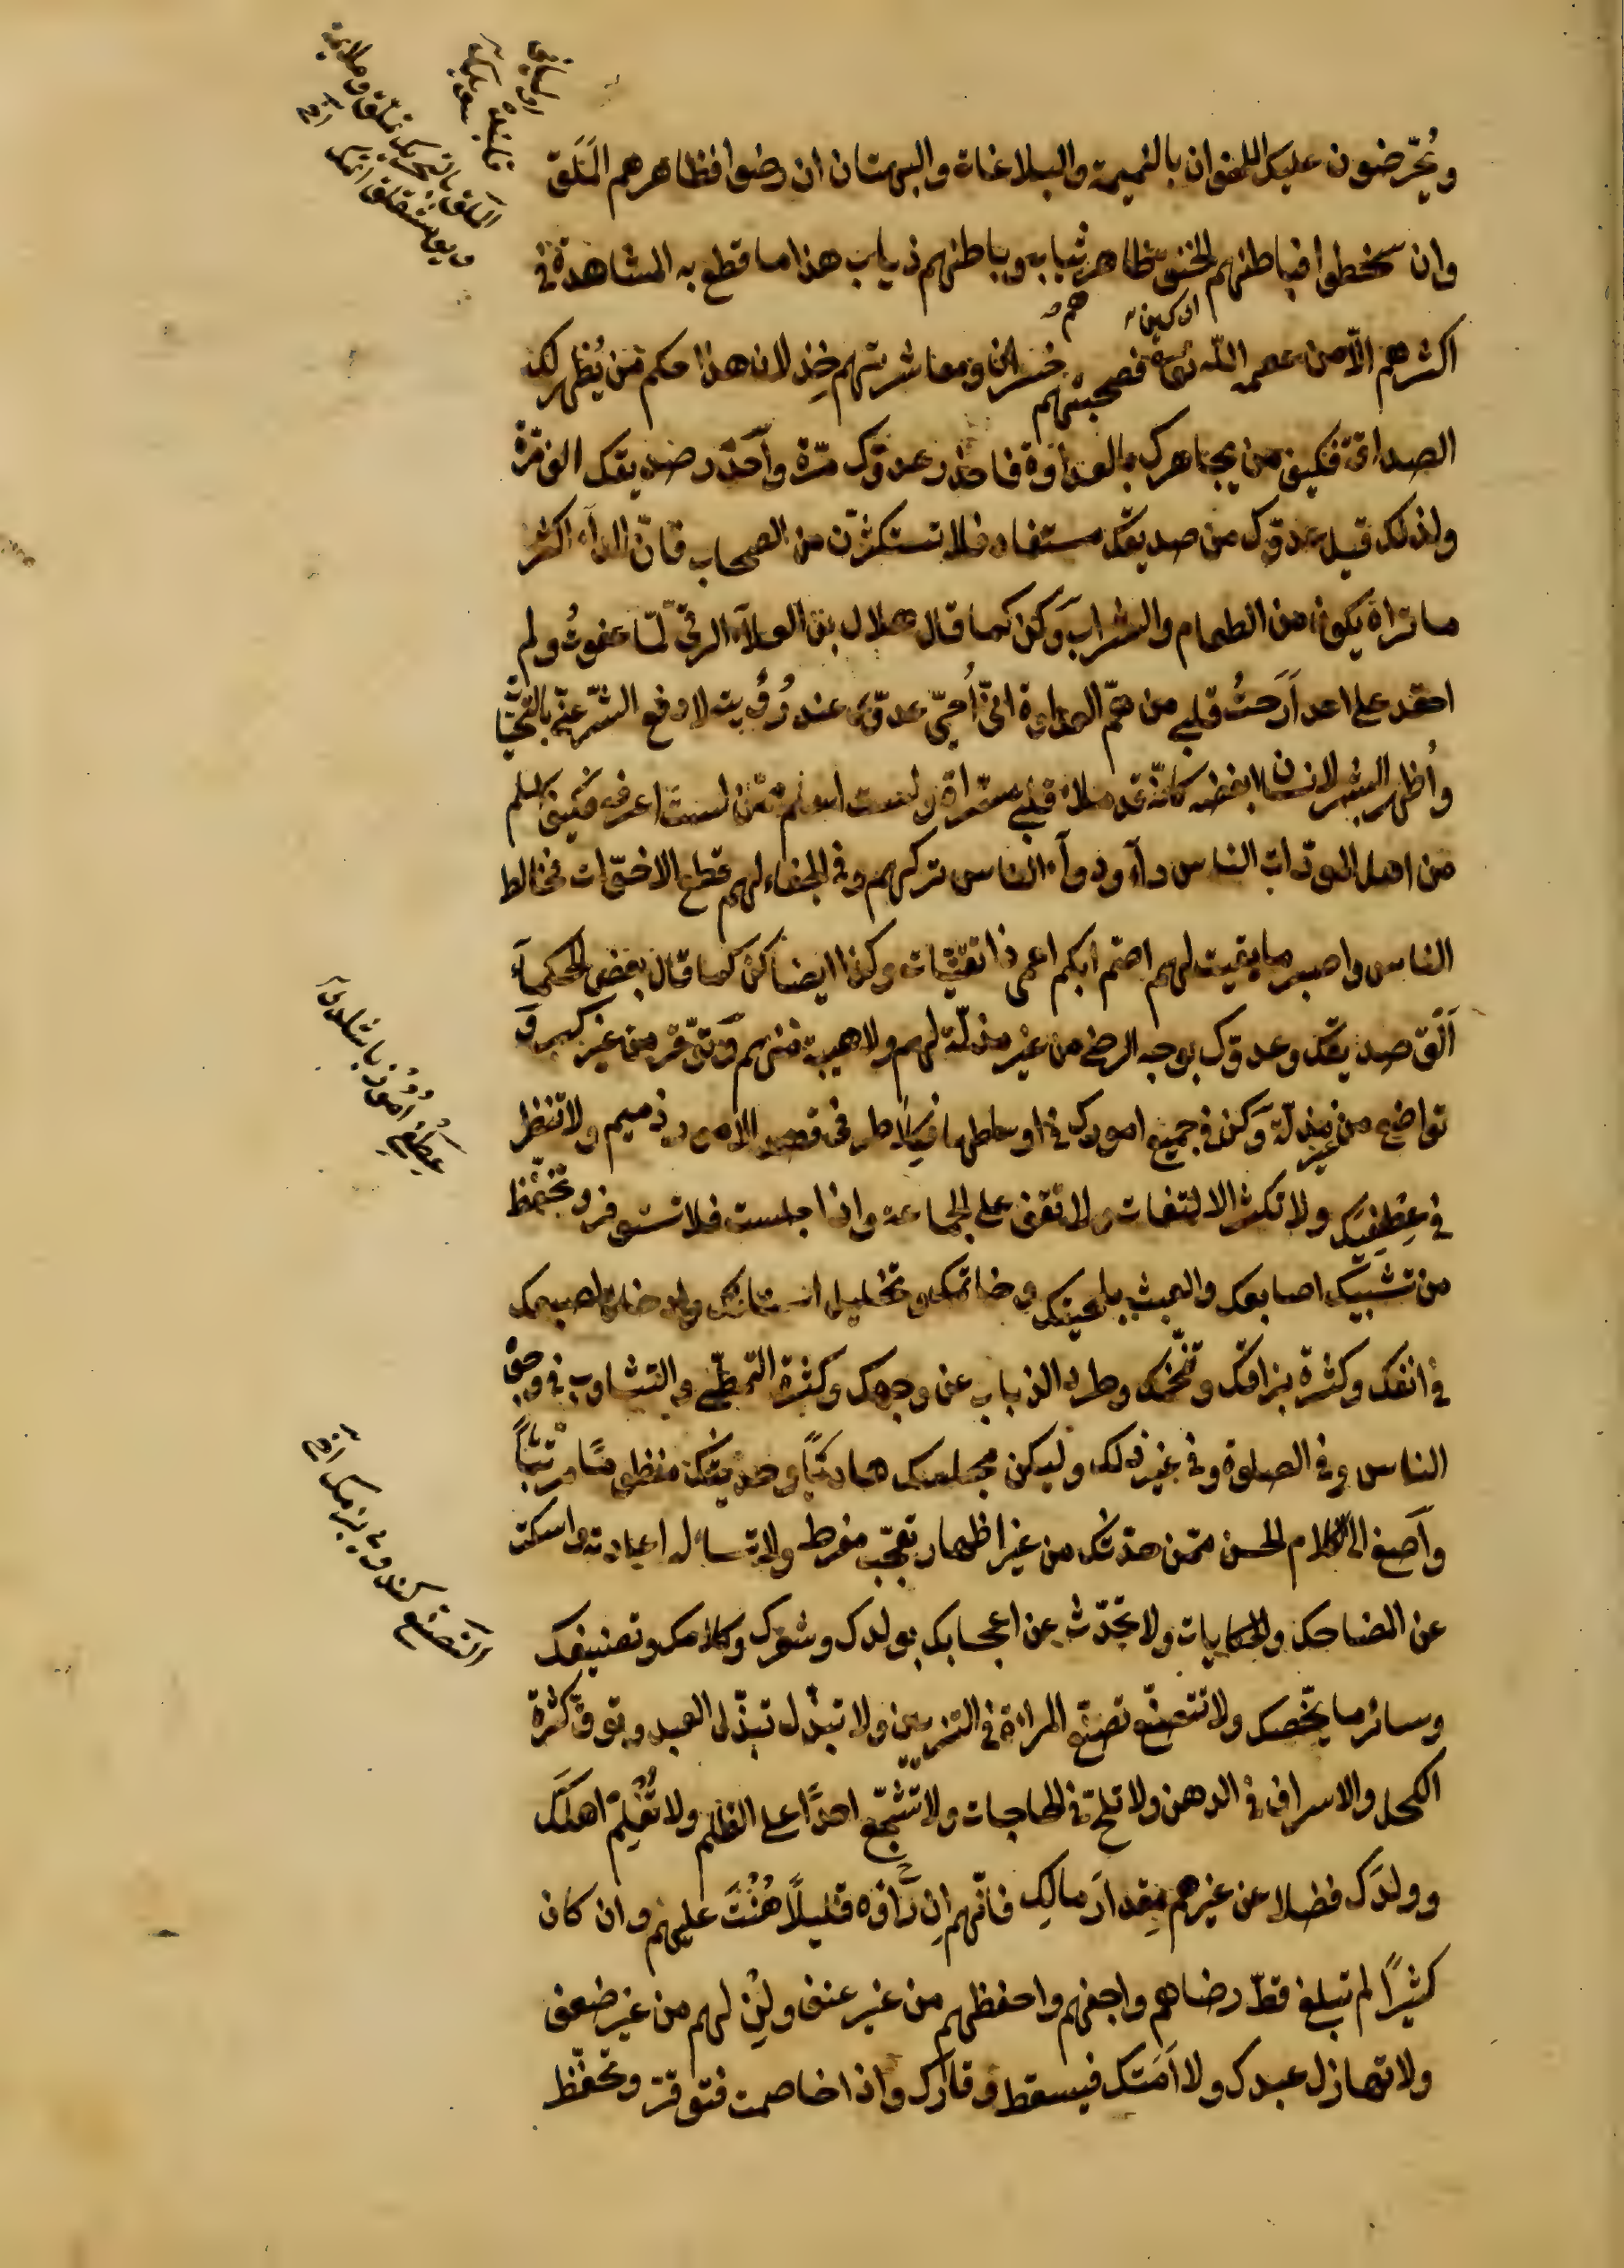 ويُحرّضون عليك الاخوان بالنميمة والبلاغات والبهتان ان رضوا فظاهرهم المَلَق
وان سخطوا فباطنهم الحنق ظاهر ثياب وباطنهم ذياب هذا ما قطع به المشاهدة في
اكثرهم الّا من عصمه الله تعالى فصحبتهم خسران ومعاشرتهم خِذلان هذا حكم من يُظهر لك
الصداقة فكيف من يجاهرك بالعداوة فاحذر عدوّك مرّة وآحذر صديقك الف مرّة
ولذلك قيل عدوّك من صديقك مستفاد فلا تستكثرن من الصحاب فانّ الداء اكثر
ما تراه يكون من الطعام والشراب وَكن كما قال هلال بن العلاء الرقي لمّا عفوتُ ولم
احقد على احد اَرَحتُ قلبي من همّ العداوة انّي اُحيّي عدوّي عند رُؤيته لادفع الشرّ عنّي بالتحيّات
واُظهر البشر لانسان ابغضه كانّه قد ملأ قلبي مسرّاة ولست اسلم ممّن لست اعرفه فكيف اسلم
من اهل المودّات الناس داء ودواء الناس تركهم وفي الجفاء لهم قطع الاخوّات فخالط
الناس واصبر ما بقيت لهم اصم ابكم اعمى ذا تقيّات وكن ايضا كما قال بعض الحكماء
اَلق صديقك وعدوّك بوجه الرضى من غير مذلّة لهم ولا هيبة منهم وَتوقّر من غير كبر و
تواضع من غير مذلّة وَكن في جميع امورك في اوساطها فكِلا طرفي قصد الامور ذميم ولا تنظر
في عِطفيك ولا تكثر الالتفات ولا تقف على الجماعة واذا جلست فلا تستوفز وتحفّظ
من تشبيك اصابعك والعبث بلحيتك وخاتمك وتخليل اسنانك وادخال اصبعك
في انفك وكثرة بزاقك وتنخّمك وطرد الذباب عن وجهك وكثرة التمطّي والتثاوب في وجوه
الناس وفي الصلوة وفي غير ذلك وليكن مجلسك هاديًا وحديثك منظومًا مرتّبًا
وآصغ الى الكلام الحسن ممّن حدّثك من غير اظهار تعجّب مفرط ولا تسأله اعادته واسكت
عن المضاحك والحكايات ولا تحدّث عن اعجابك بولدك وشعرك وكلامك وتصنيفك
وسائر ما يخصّك ولا تتصنّع تصنّع المراة في التزيين ولا تبذّل تبذّل العبد وتوقّ كثرة
الكحل والاسراف في الدهن ولا تلحّ في الحاجات ولا تشجّع احدًا على الظلم ولا تُعْلِمْ اهلَك
وولدَك فضلا عن غيرهم مِقدارَ مالِك فانّهم اِن رَّأوْه قليلًا هُنْتَ عليهم وان كان
كثيرًا لم تبلغ قطّ رضاهم واجفهم واحفظهم من غير عنف ولِن لهم من غير ضعف
ولا تهازل عبدك ولا اَمَتك فيسقط وقارك واذا خاصمت فتوقّر وتحفّظ